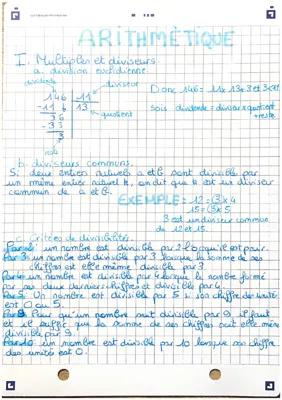 ARITHMÈTIQUE
I. Multiples et diviseurs:
a. division euclidienne.
dividende
diviseur
146 | 11
-11 | 13
36
-33
3
quotient
reste
Donc 146 = 11 x 13 + 3 et 3<11
Soit dividende = diviseur x quotient
+ reste
b. diviseurs communs.
Si deux entiers naturels a et b sont divisible par
un même entier naturel k, on dit que k est un diviseur
commun de a et b.
EXEMPLE: 12 = 3 x 4
15 = 3 x 5
3 est un diviseur commun
de 12 et 15.
c. Critères de divisibilités.
Par 2: un nombre est divisible par 2 lorsqu'il est pair.
Par 3: un nombre est divisible par 3 lorsque la somme de ses
chiffres est elle même divisible par 3
Par 4: un nombre est divisible par 4 lorsque le nombre formé
par ses deux derniers chiffres est divisible par 4.
Par 5: Un nombre est divisible par 5 si son chiffre des unité
est 0 ou 5.
Par 9: Pour qu'un nombre soit divisible par 9, il faut
et il suffit que la somme de ses chiffres soit elle même
divisible par 9.
Par 10: un nombre est divisible par 10 lorsque son chiffre
des unités est 0.